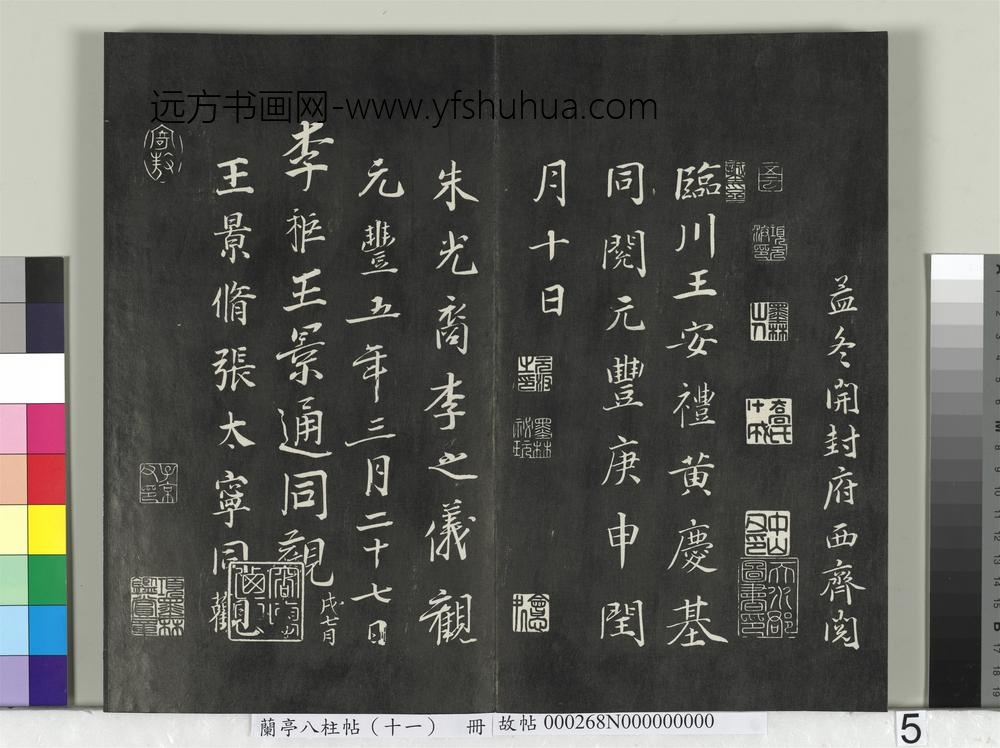 远方书画网-www.yfshuhua.com
益冬開封府西齊閱
臨川王安禮黄慶基
同閱元豐庚申閏
月十日
朱光裔李之儀觀
元豐五年三月二十七日
李秬王景通同觀
戊七日
王景脩張太寧同觀
項墨林鑑賞章
蘭亭八柱帖（十一） 冊
故帖 000268N000000000
5